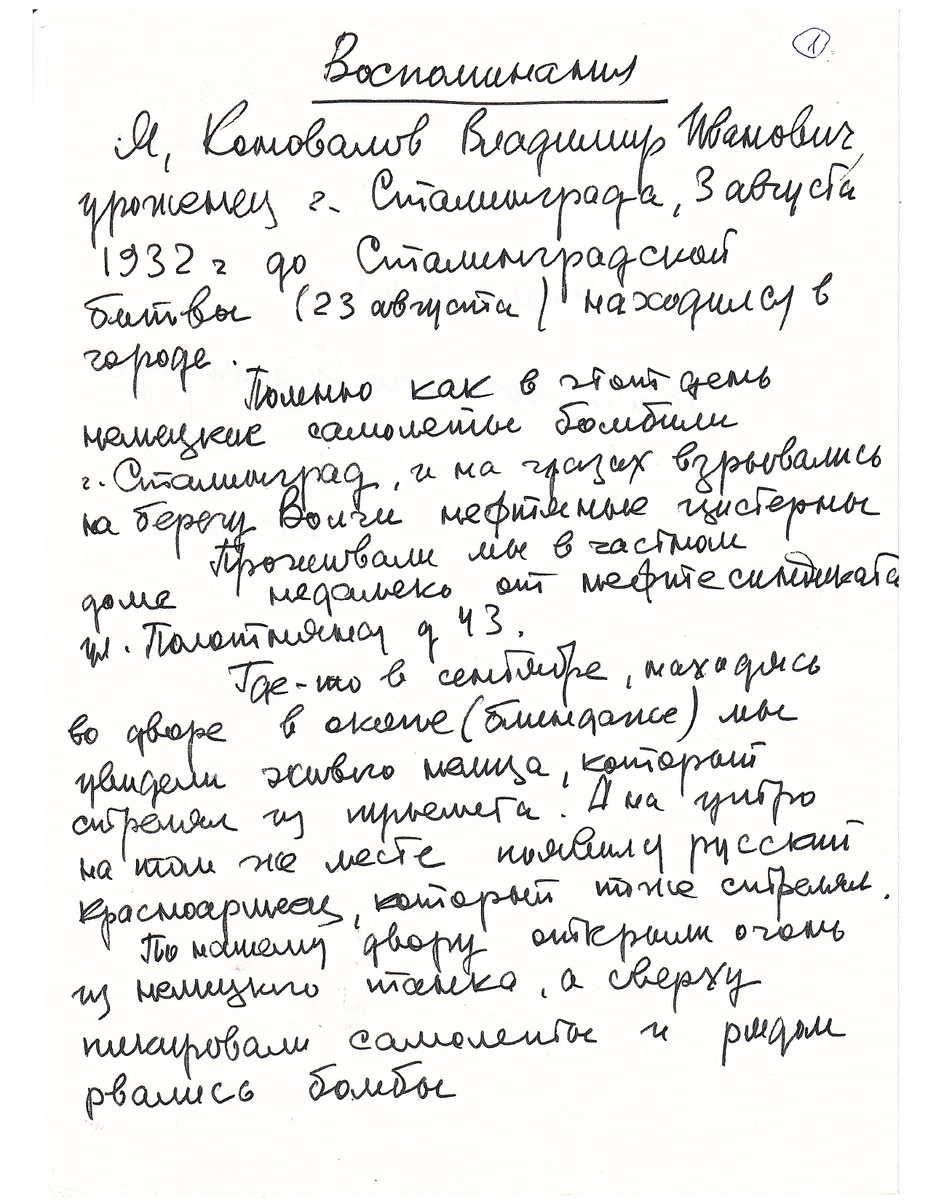 1
Воспоминания
Я, Коновалов Владимир Иванович,
уроженец г. Сталинграда, 3 августа
1932 г до Сталинградской
битвы (23 августа) находился в
городе.
Помню как в этот день
немецкие самолеты бомбили
г. Сталинград, и на глазах взрывались
на берегу Волги нефтяные цистерны
Проживали мы в частном
доме недалеко от нефтесиндиката
ул. Полотняная д 43.
Где-то в сентябре, находясь
во дворе в окопе (блиндаже) мы
увидели живого немца, который
стрелял из пулемета. А на утро
на том же месте появился русский
красноармеец, который тоже стрелял.
По нашему двору открыли огонь
из немецкого танка, а сверху
пикировали самолеты и рядом
рвались бомбы